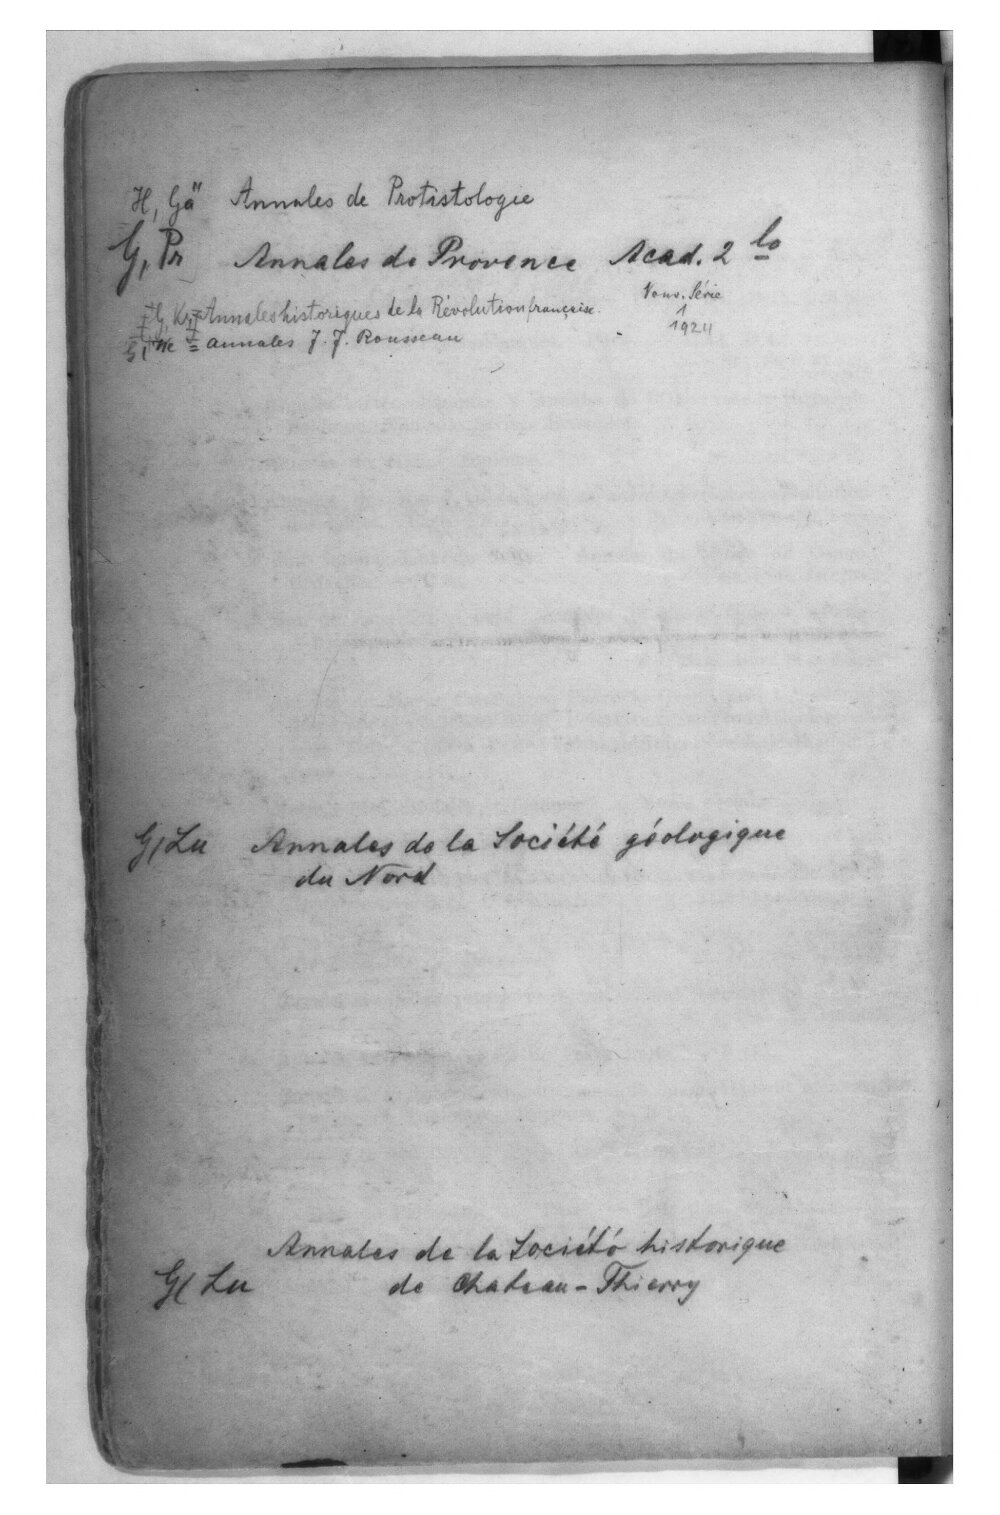 H, Gä" Annales de Protistologie
G, Pr Annales de Provence Acad. 2 lo
G, Kr = Annales historiques de la Révolution française. Nouv. Série 1 1924
G, We = Annales J. J. Rousseau
G, Lu Annales de la Société géologique
du Nord
Annales de la Société historique
G, Lu de Chateau-Thierry